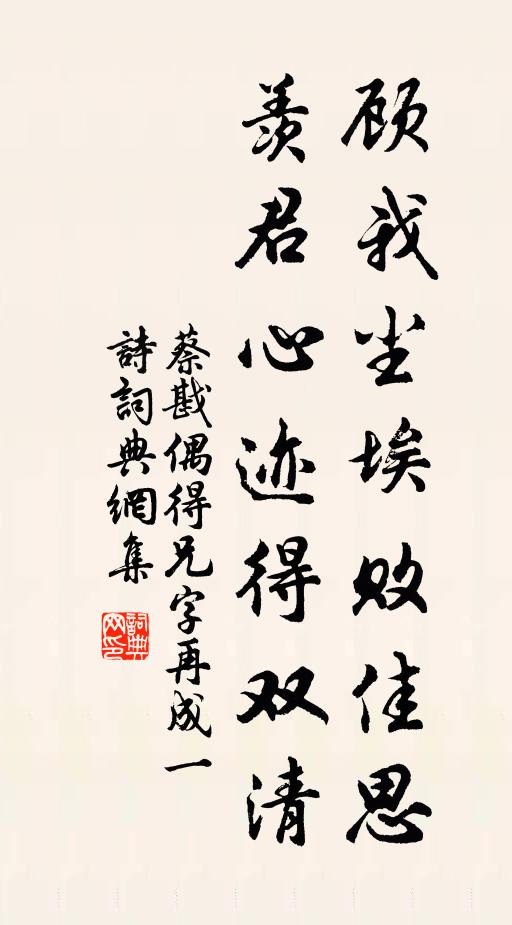 顾我尘埃败佳思
羡君心迹得双清
蔡戡偶得兄字再成一
詩詞典網集
詞典网印